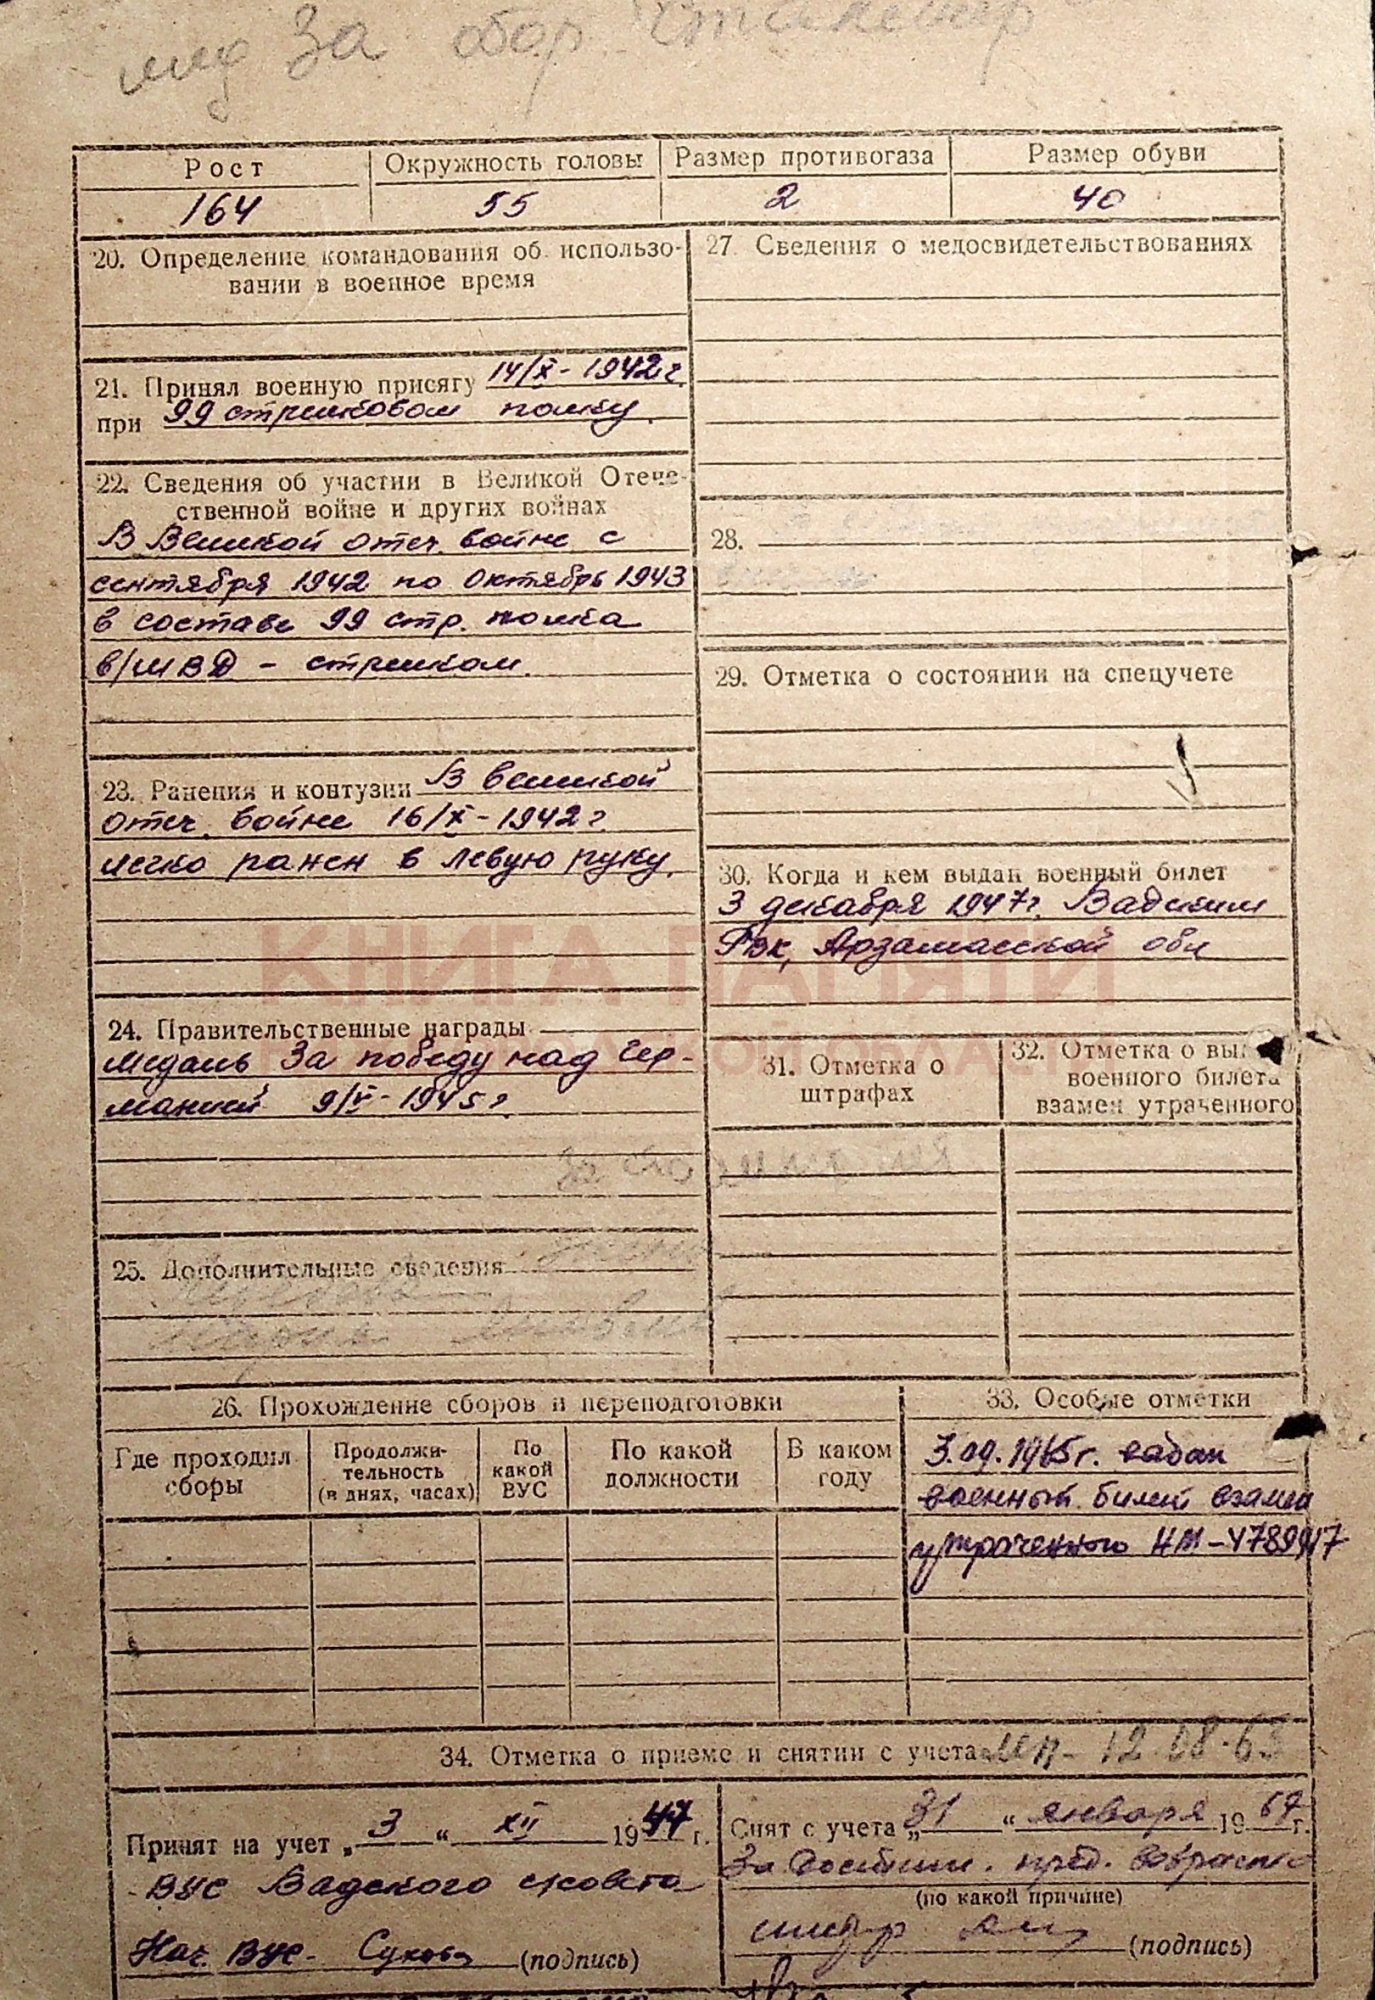 За обор
Рост
Окружность головы
Размер противогаза
Размер обуви
164
55
2
40
20. Определение командования об использо-
вании в военное время
21. Принял военную присягу 14/X - 1942 г.
при 99 стрелковом полку.
22. Сведения об участии в Великой Отече-
ственной войне и других войнах
В Великой отеч. войне с
сентября 1942 по октябрь 1943
в составе 99 стр. полка
- стрелком.
23. Ранения и контузии В великой
отеч. войне 16/X - 1942 г.
легко ранен в левую руку.
24. Правительственные награды
медаль За победу над Гер-
манией 9/V - 1945 г.
25. Дополнительные сведения
27 Сведения о медосвидетельствованиях
28.
29. Отметка о состоянии на спецучете
30. Когда и кем выдан военный билет
3 декабря 1947 г. Вадским
РВК, Арзамасской обл
КНИГА ПАМЯТИ
31. Отметка о
штрафах
32. Отметка о вы
военного билета
взамен утраченного
26. Прохождение сборов и переподготовки
Где проходил
сборы
Продолжи-
тельность
(в днях, часах)
По
какой
ВУС
По какой
должности
В каком
году
33. Особые отметки
3.09.1965 г. выдан
военный билет взамен
утраченного НМ-4789917
34. Отметка о приеме и снятии с учета
12.08.63
Принят на учет „3“ XII 1947 г.
ВУС Вадского с/совета
Нач. ВУС - (подпись)
Снят с учета „31“ января 1967 г.
За достиж. пред. возраста
(по какой причине)
(подпись)